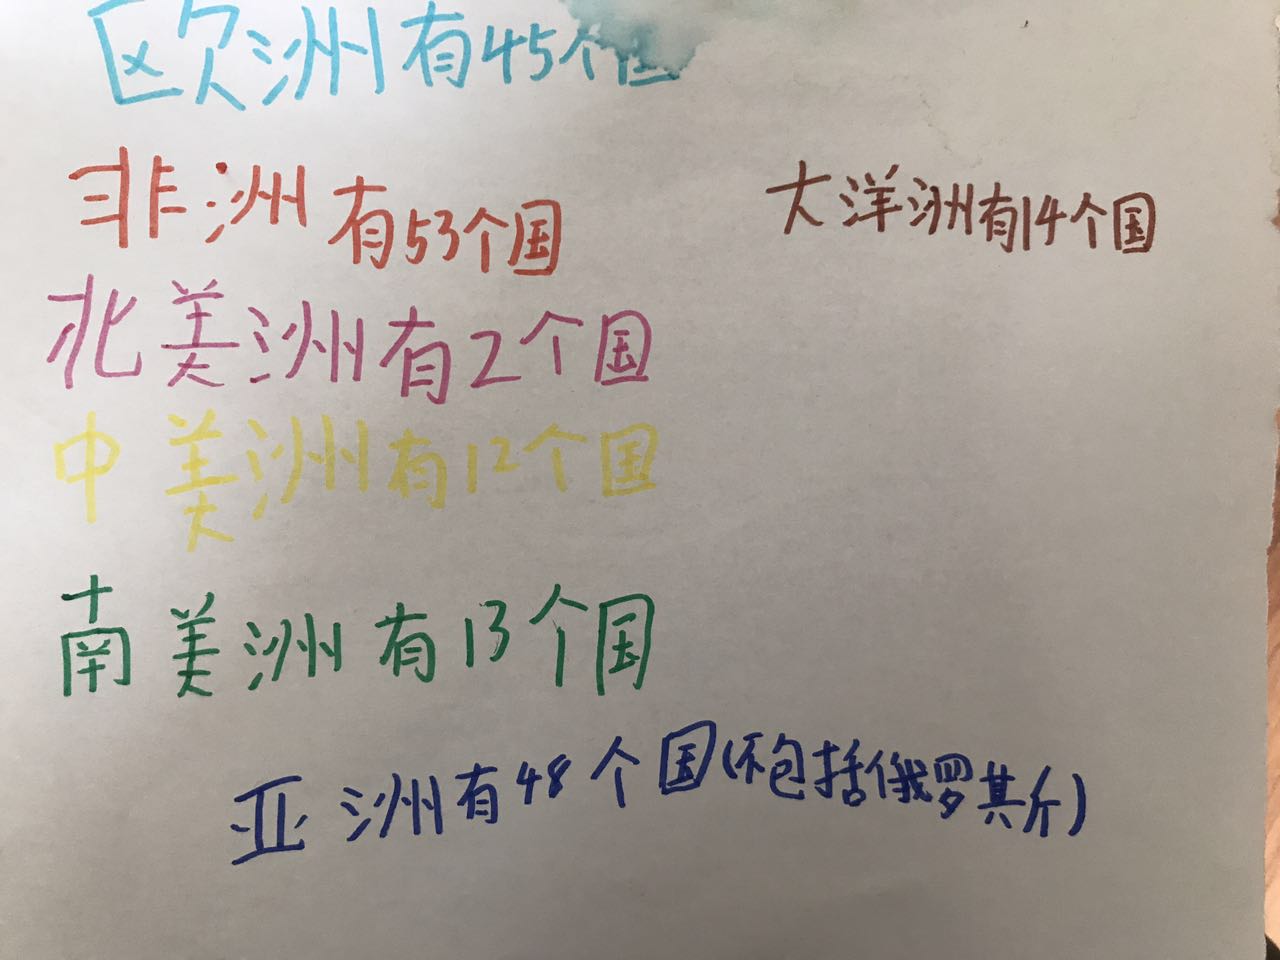 欧洲有45个国
非洲有53个国
大洋洲有14个国
北美洲有2个国
中美洲有12个国
南美洲有13个国
亚洲有48个国(不包括俄罗斯)